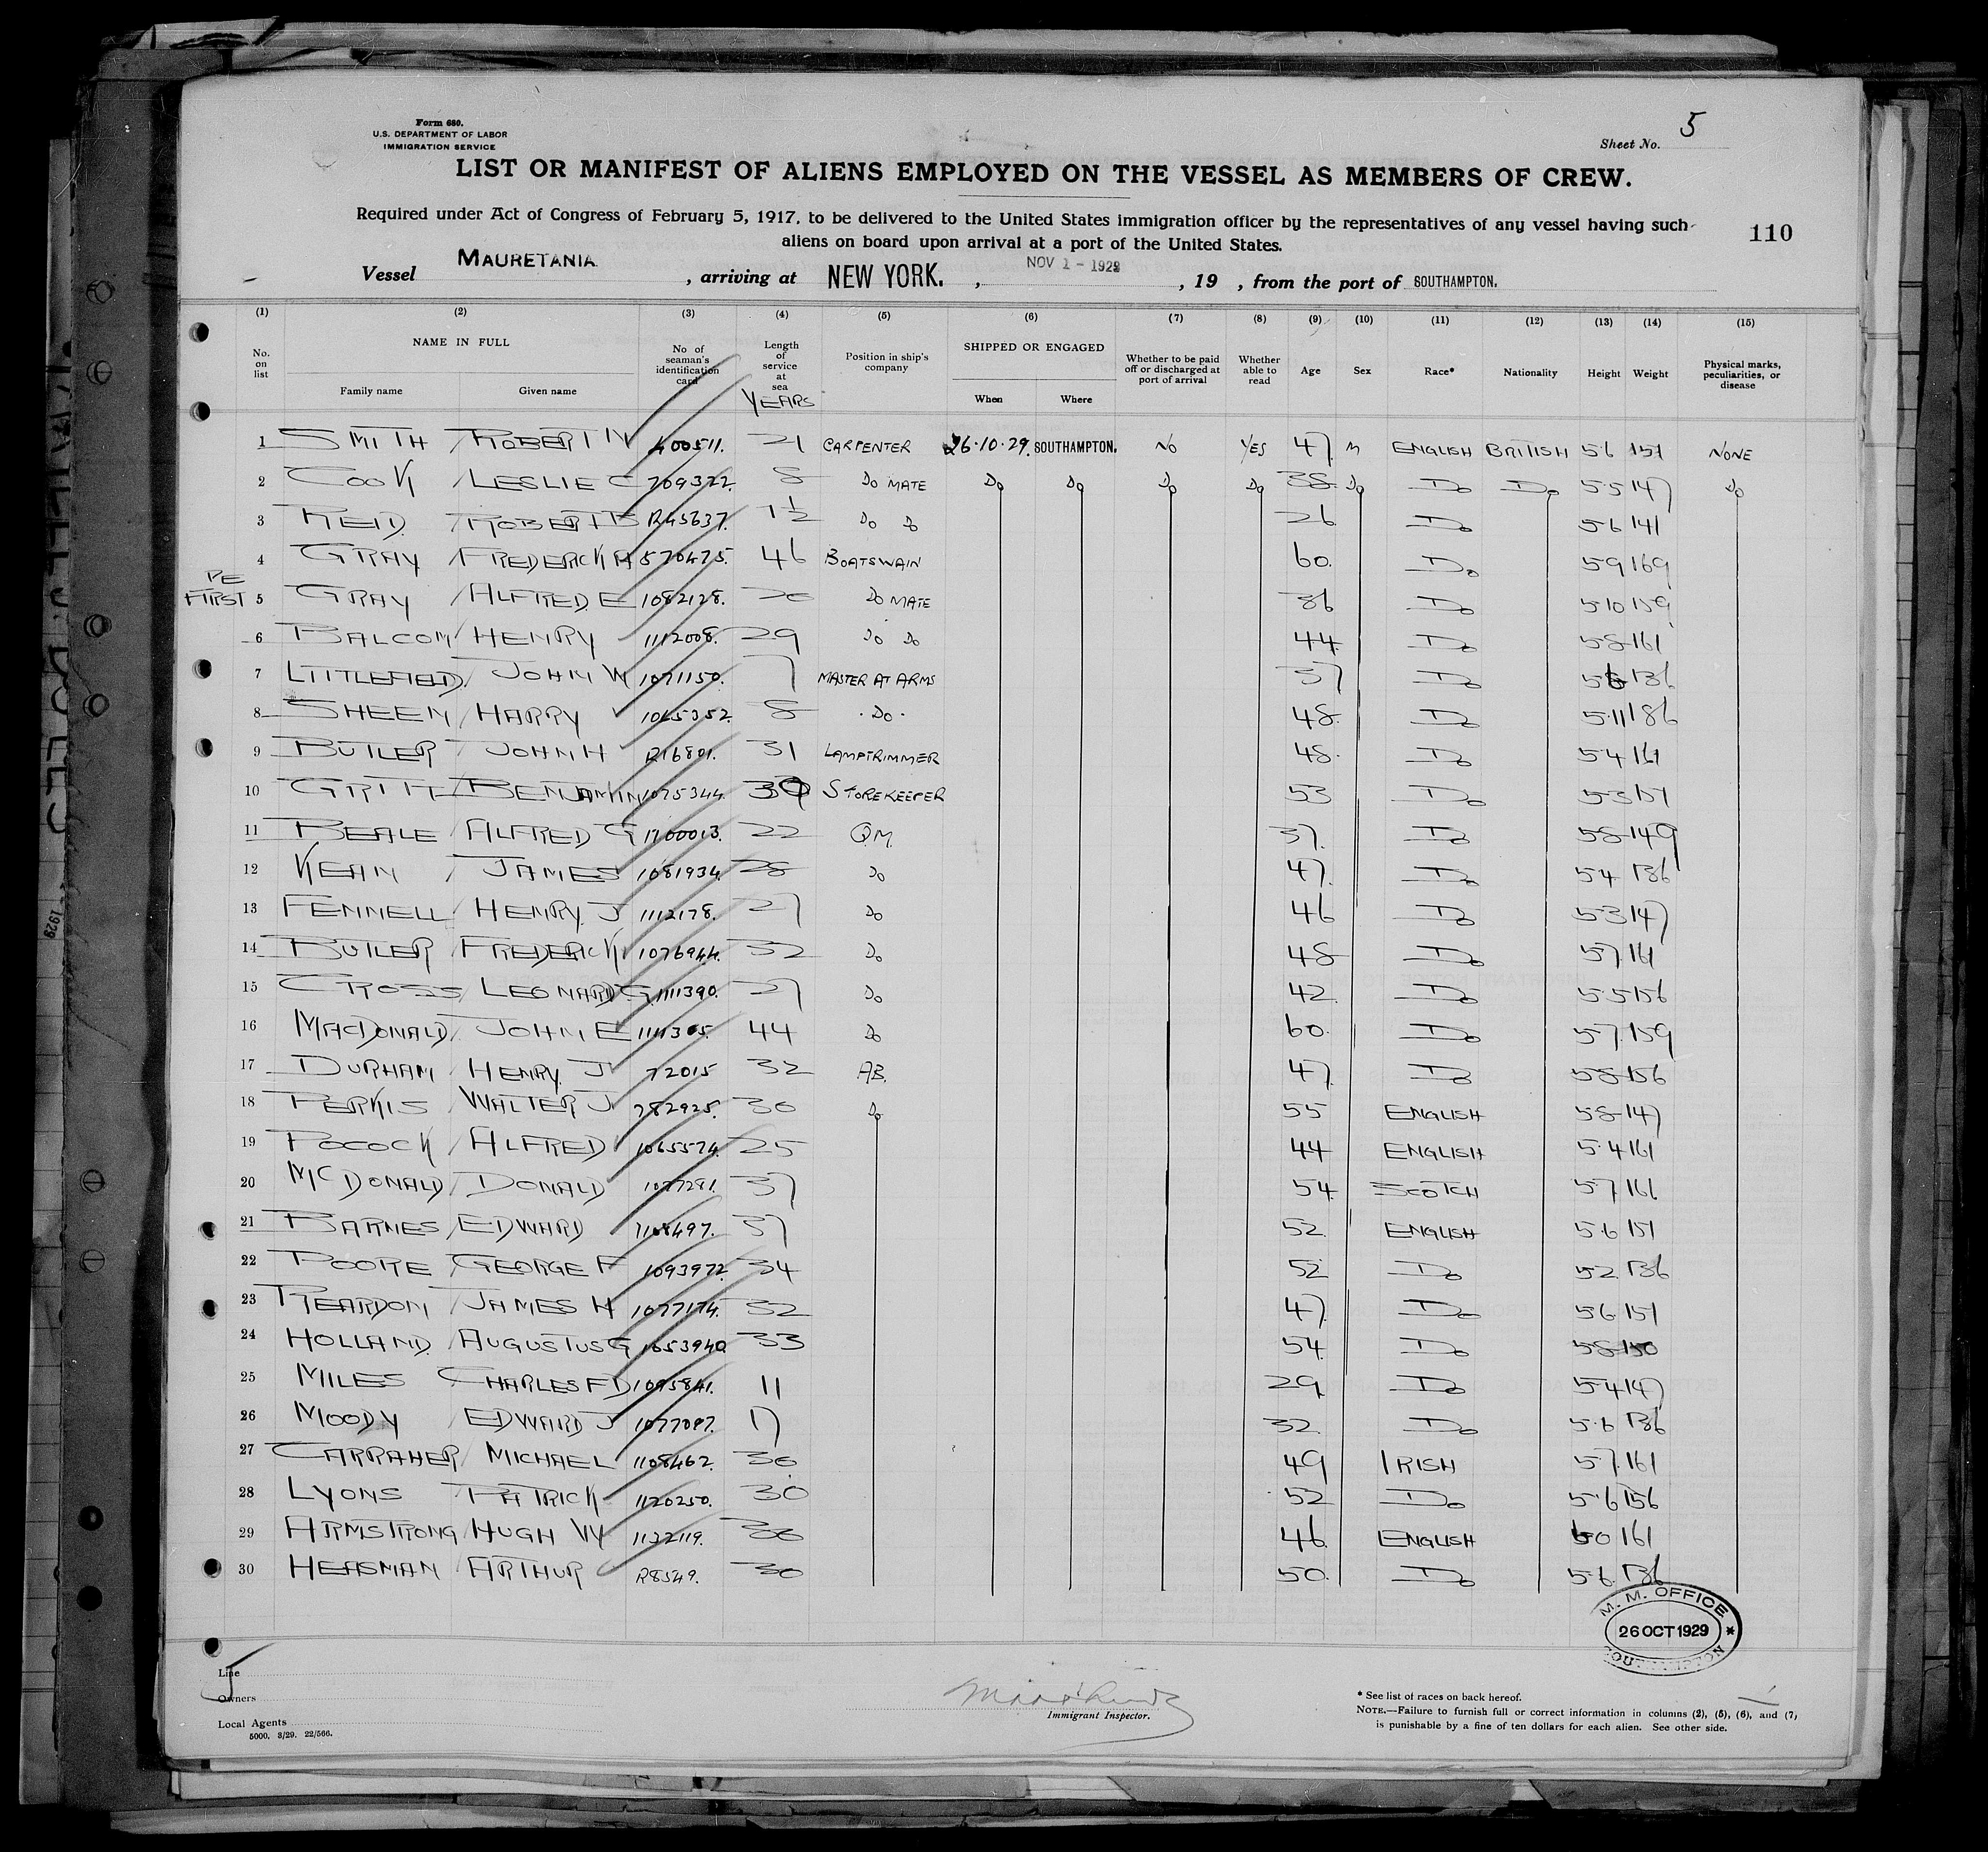 Form 680.
U.S. DEPARTMENT OF LABOR
IMMIGRATION SERVICE
Sheet No. 5
LIST OR MANIFEST OF ALIENS EMPLOYED ON THE VESSEL AS MEMBERS OF CREW.
Required under Act of Congress of February 5, 1917, to be delivered to the United States immigration officer by the representatives of any vessel having such
aliens on board upon arrival at a port of the United States.
110
Vessel MAURETANIA, arriving at NEW YORK., NOV 1 - 1929, 19 , from the port of SOUTHAMPTON.
(1) (2) (3) (4) (5) (6) (7) (8) (9) (10) (11) (12) (13) (14) (15)
No. on list NAME IN FULL Family name Given name No of seaman's identification card Length of service at sea YEARS Position in ship's company SHIPPED OR ENGAGED When Where Whether to be paid off or discharged at port of arrival Whether able to read Age Sex Race* Nationality Height Weight Physical marks, peculiarities, or disease
1 SMITH ROBERT W 400511. 21 CARPENTER 26.10.29. SOUTHAMPTON. NO YES 47 M ENGLISH BRITISH 5.6 151 NONE
2 COOK LESLIE C 709322. 8 DO MATE DO DO DO DO 38 DO DO DO 5.5 147 DO
3 REID ROBERT B R45637. 1½ DO DO 26 DO 5.6 141
4 GRAY FREDERICK A 570475. 46 BOATSWAIN 60. DO 5.9 169
PE FIRST 5 GRAY ALFRED E 1082128. 20 DO MATE 36 DO 5.10 159
6 BALCOM HENRY 1112008. 29 DO DO 44 DO 5.8 161
7 LITTLEFIELD JOHN W 1071150. 7 MASTER AT ARMS 37 DO 136
8 SHEEN HARRY 1065352 8 DO 48 DO 5.11 186
9 BUTLER JOHN H R16801. 31 LAMPTRIMMER 48 DO 5.4 161
10 BENJAMIN 1075344 STOREKEEPER 53 DO 5.3 151
11 BEALE ALFRED G 1700013. 22 QM 37. DO 5.8 149
12 KEAN JAMES 1081934 28 DO 47. DO 5.4 136
13 FENNELL HENRY. J 1112178. 27 DO 46 DO 5.3 147
14 BUTLER FREDERICK 1076944. 32 DO 48 DO 5.7 161
15 CROSS LEONARD G 1111390. 27 DO 42 DO 5.5 156
16 MACDONALD JOHN E 1111305. 44 DO 60. DO 5.7 159
17 DURHAM HENRY. J 72015 32 AB. 47 DO 5.8 156
18 PERKIS WALTER J 782925. 30 DO 55 ENGLISH 5.8 147
19 POCOCK ALFRED 1065574 25 44 ENGLISH 5.4 161
20 MCDONALD DONALD 1077291. 37 54 SCOTCH 5.7 161
21 BARNES EDWARD 1108497. 37 52 ENGLISH 5.6 151
22 POORE GEORGE F 1093972 34 52 DO 5.2 136
23 REARDON JAMES H 1077174. 32 47 DO 5.6 151
24 HOLLAND AUGUSTUS G 1053940 33 54 DO 5.8 150
25 MILES CHARLES F D 1095841. 11 29 DO 5.4 147
26 MOODY EDWARD J 1077097. 17 32 DO 5.6 136
27 CARRAHER MICHAEL 1108462. 30 49 IRISH 5.7 161
28 LYONS PATRICK 1120250. 30 52 DO 5.6 156
29 ARMSTRONG HUGH W 1122119. 30 46 ENGLISH 161
30 HEASMAN ARTHUR R8549. 30 50. DO 5.6 136
M. M. OFFICE
26 OCT 1929
SOUTHAMPTON
Line
Owners
Local Agents
5000. 3/29. 22/566.
Immigrant Inspector.
* See list of races on back hereof.
NOTE.—Failure to furnish full or correct information in columns (2), (5), (6), and (7)
is punishable by a fine of ten dollars for each alien. See other side.
1929